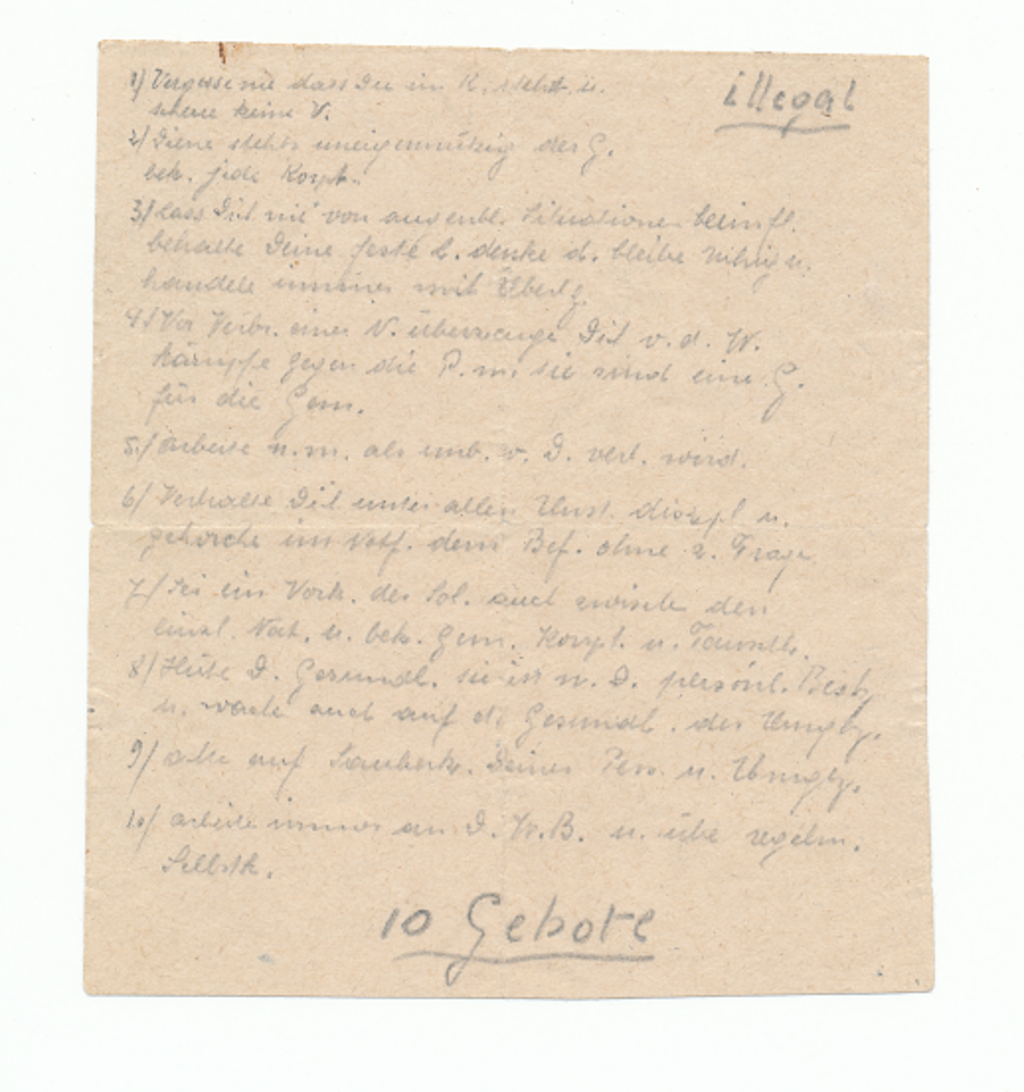 illegal
1) Vergesse nie dass Du im K. stehst u.
scheue keine V.
2) Diene stehts uneigennützig der G.
bek. jede Korpt.
3) Lass Dich nie von augenbl. Situationen beeinfl.
behalte Deine feste L. denke d. bleibe ruhig u.
handele immer mit Überlg.
4) Vor Verbr. einer N. überzeuge Dich v. d. W.
kämpfe gegen die P. m. sie sind eine G.
für die Gem.
5) arbeite n. m. als unb. v. D. verl. wird.
6) Verhalte Dich unter allen Umst. diszipl u.
gehorche im Notf. dem Bef. ohne z. Frage
7) Sei ein Vork. der Sol. auch zwischen den
einzl. Nat. u. bek. gem. Korpt. u. Tauschh.
8) Hüte D. Gesundh. sie ist n. D. persönl. Besitz
u. wache auch auf di Gesundh. der Umgbg.
9) achte auf Sauberk. Deiner Pers. u. Umgbg.
10) arbeite immer an D. W.B. u. übe regelm.
Selbstk.
10 Gebote